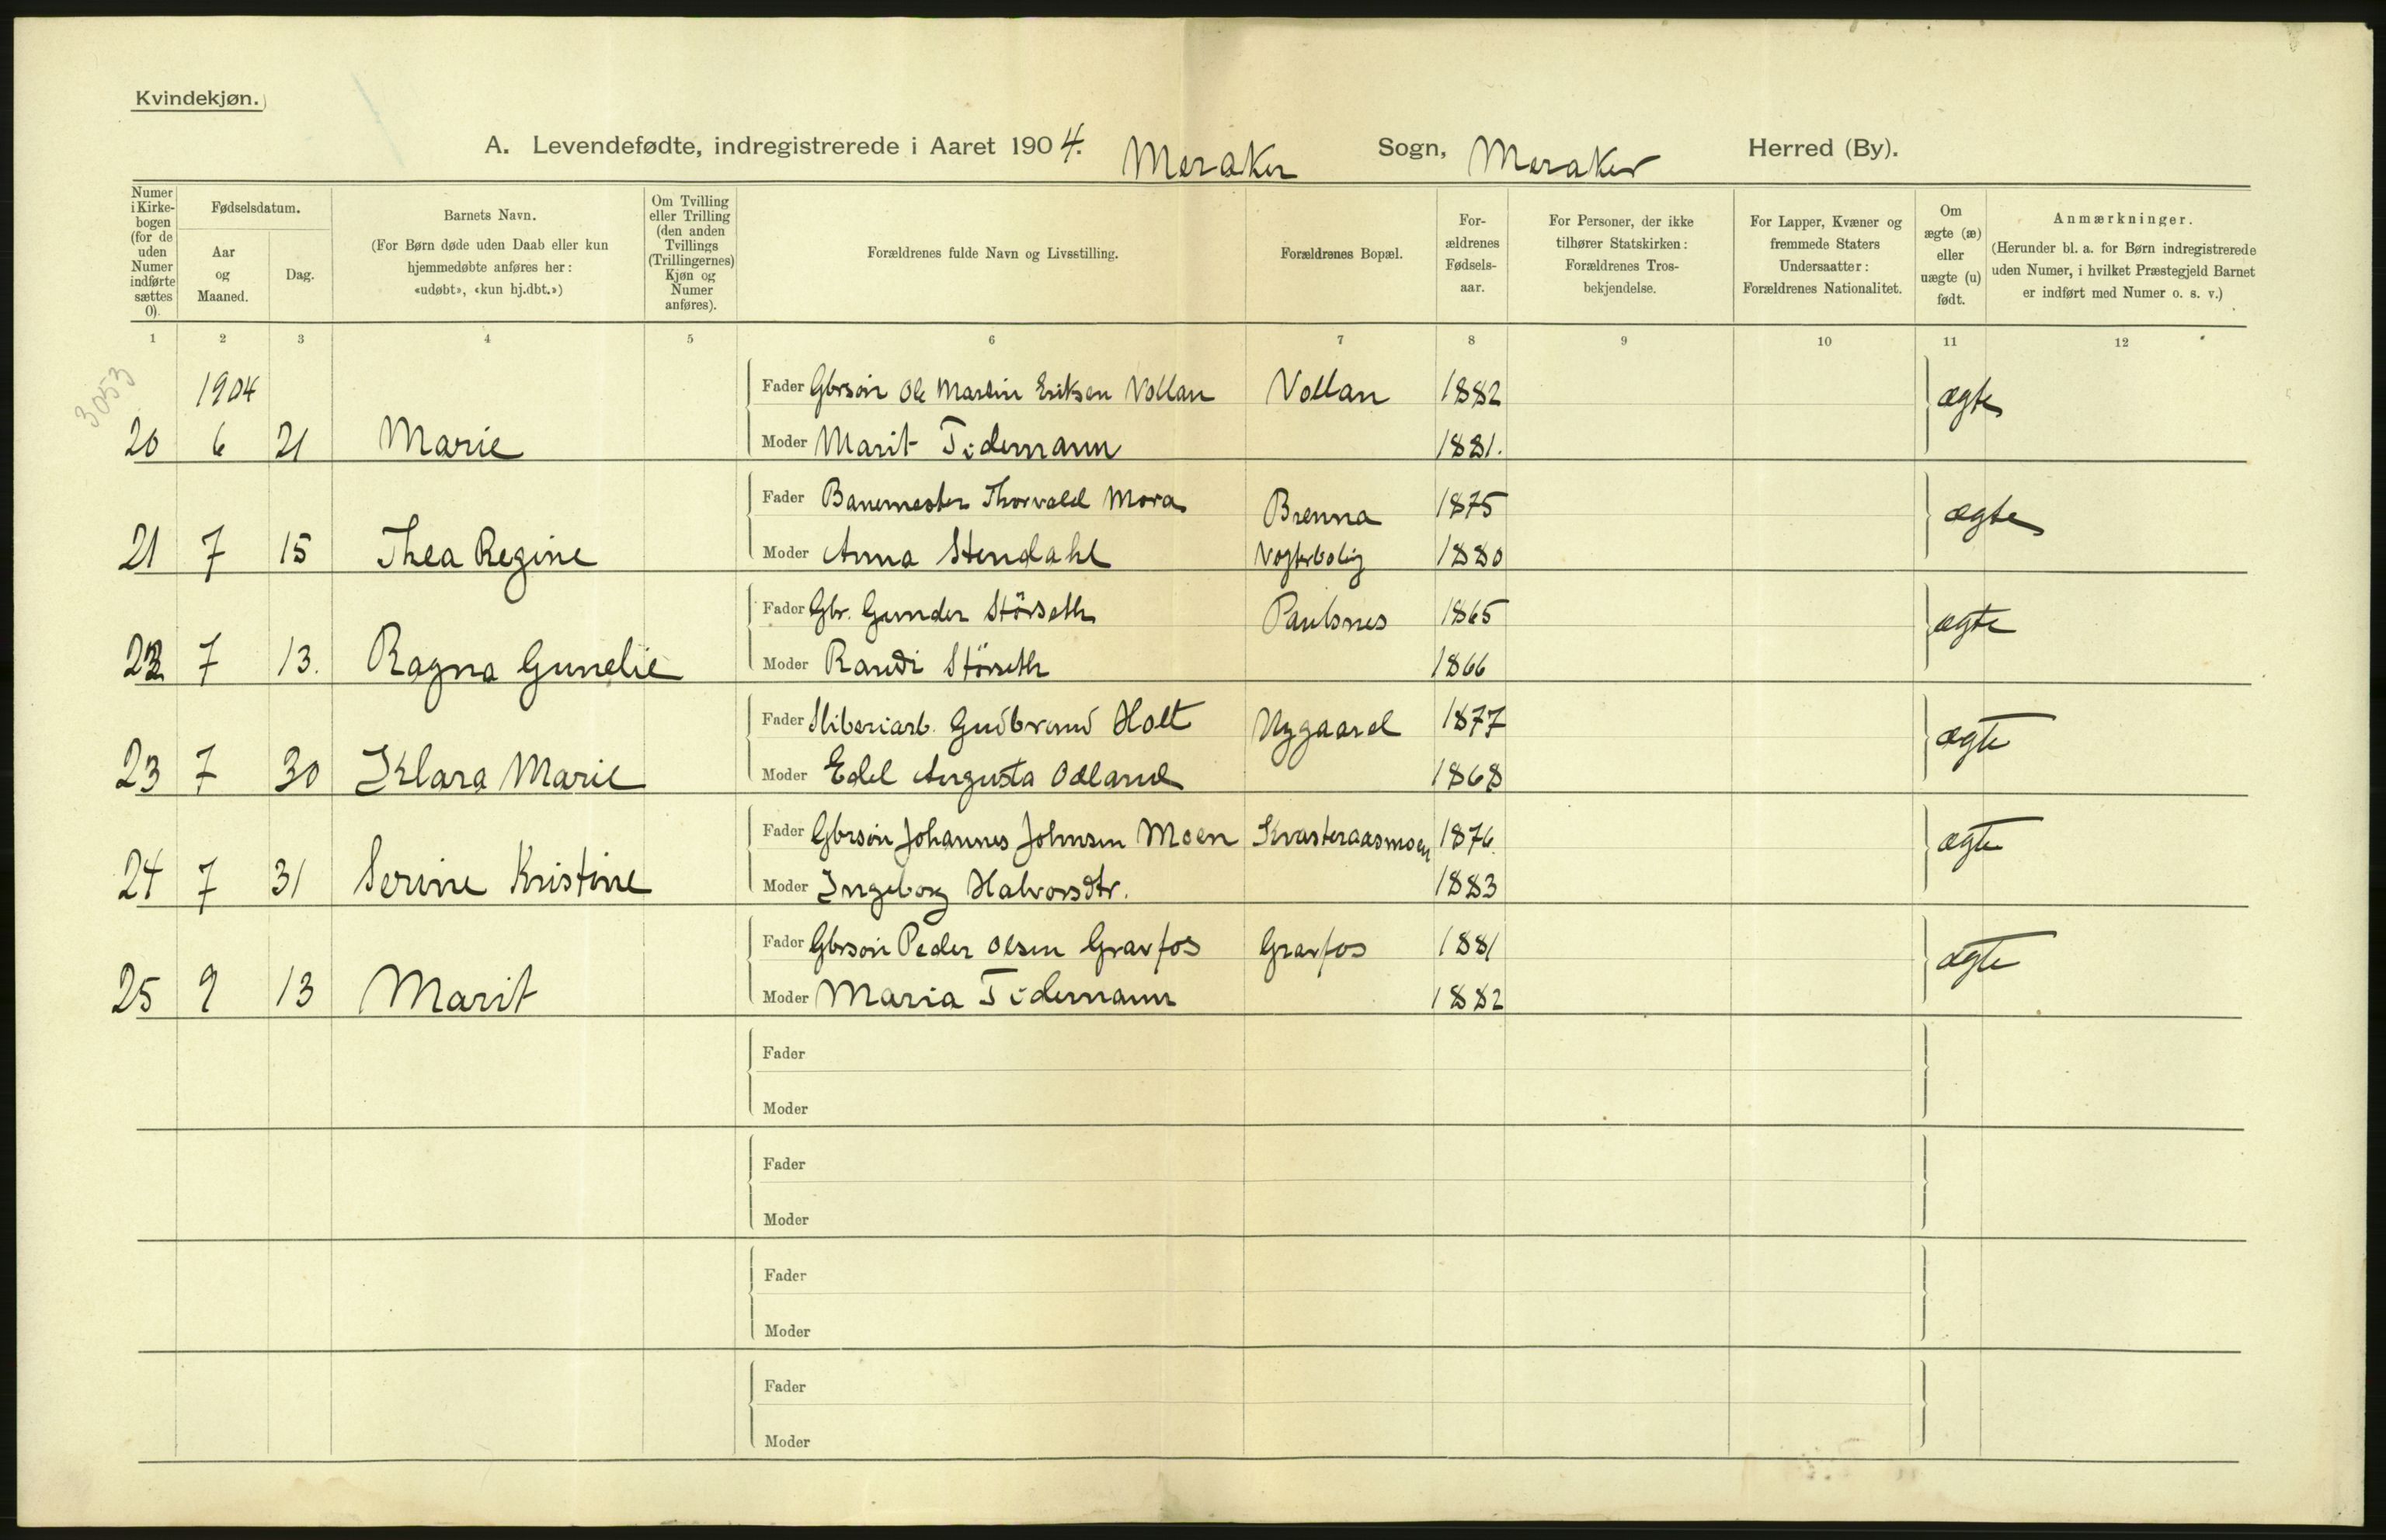 Kvindekjøn.
A. Levendefødte, indregistrerede i Aaret 1904. Meraker Sogn, Meraker Herred (By).
Numer i Kirke-bogen (for de uden Numer indførte sættes 0).
Fødselsdatum.
Aar og Maaned.
Dag.
Barnets Navn.
(For Børn døde uden Daab eller kun hjemmedøbte anføres her: «udøbt», «kun hj.dbt.»)
Om Tvilling eller Trilling (den anden Tvillings (Trillingernes) Kjøn og Numer anføres).
Forældrenes fulde Navn og Livsstilling.
Forældrenes Bopæl.
For-ældrenes Fødsels-aar.
For Personer, der ikke tilhører Statskirken: Forældrenes Tros-bekjendelse.
For Lapper, Kvæner og fremmede Staters Undersaatter: Forældrenes Nationalitet.
Om ægte (æ) eller uægte (u) født.
Anmærkninger.
(Herunder bl. a. for Børn indregistrerede uden Numer, i hvilket Præstegjeld Barnet er indført med Numer o. s. v.)
1 2 3 4 5 6 7 8 9 10 11 12
3053
1904 Fader Gbrsøn Ole Martin Eriksen Vollan Vollan 1882 ægte
20 6 21 Marie Moder Marit Tidemann 1881.
Fader Banemester Thorvald Mora Brenna 1875 ægte
21 7 15 Thea Regine Moder Anna Stendahl Vogterbolig 1880
Fader Gbr. Gunder Störseth Paulsnes 1865 ægte
22 7 13. Ragna Gunelie Moder Randi Störseth 1866
Fader Sliberiarb. Gudbrand Holt Nygaard 1877 ægte
23 7 30 Klara Marie Moder Edel Augusta Odland 1868
Fader Gbrsøn Johannes Johnsen Moen Kvasteraasmoen 1876. ægte
24 7 31 Serine Kristine Moder Ingeborg Halvorsdtr. 1883
Fader Gbrsøn Peder Olsen Gravfos Gravfos 1881 ægte
25 9 13 Marit Moder Maria Tidemann 1882
Fader
Moder
Fader
Moder
Fader
Moder
Fader
Moder